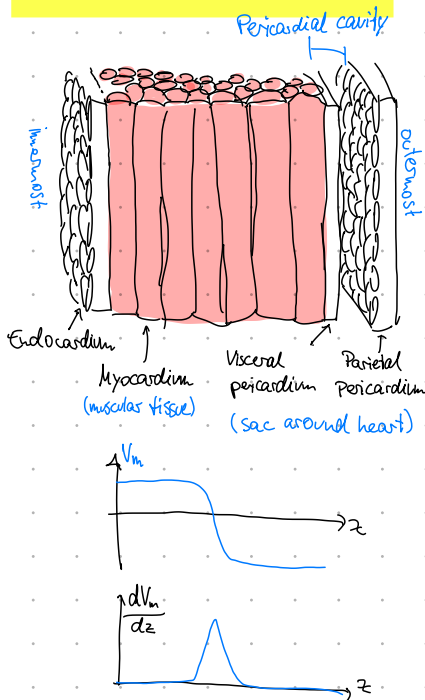 Pericardial cavity
innermost
outermost
Endocardium
Myocardium
(muscular tissue)
Visceral
pericardium
Parietal
Pericardium
(sac around heart)
Vm
z
dVm
dz
z